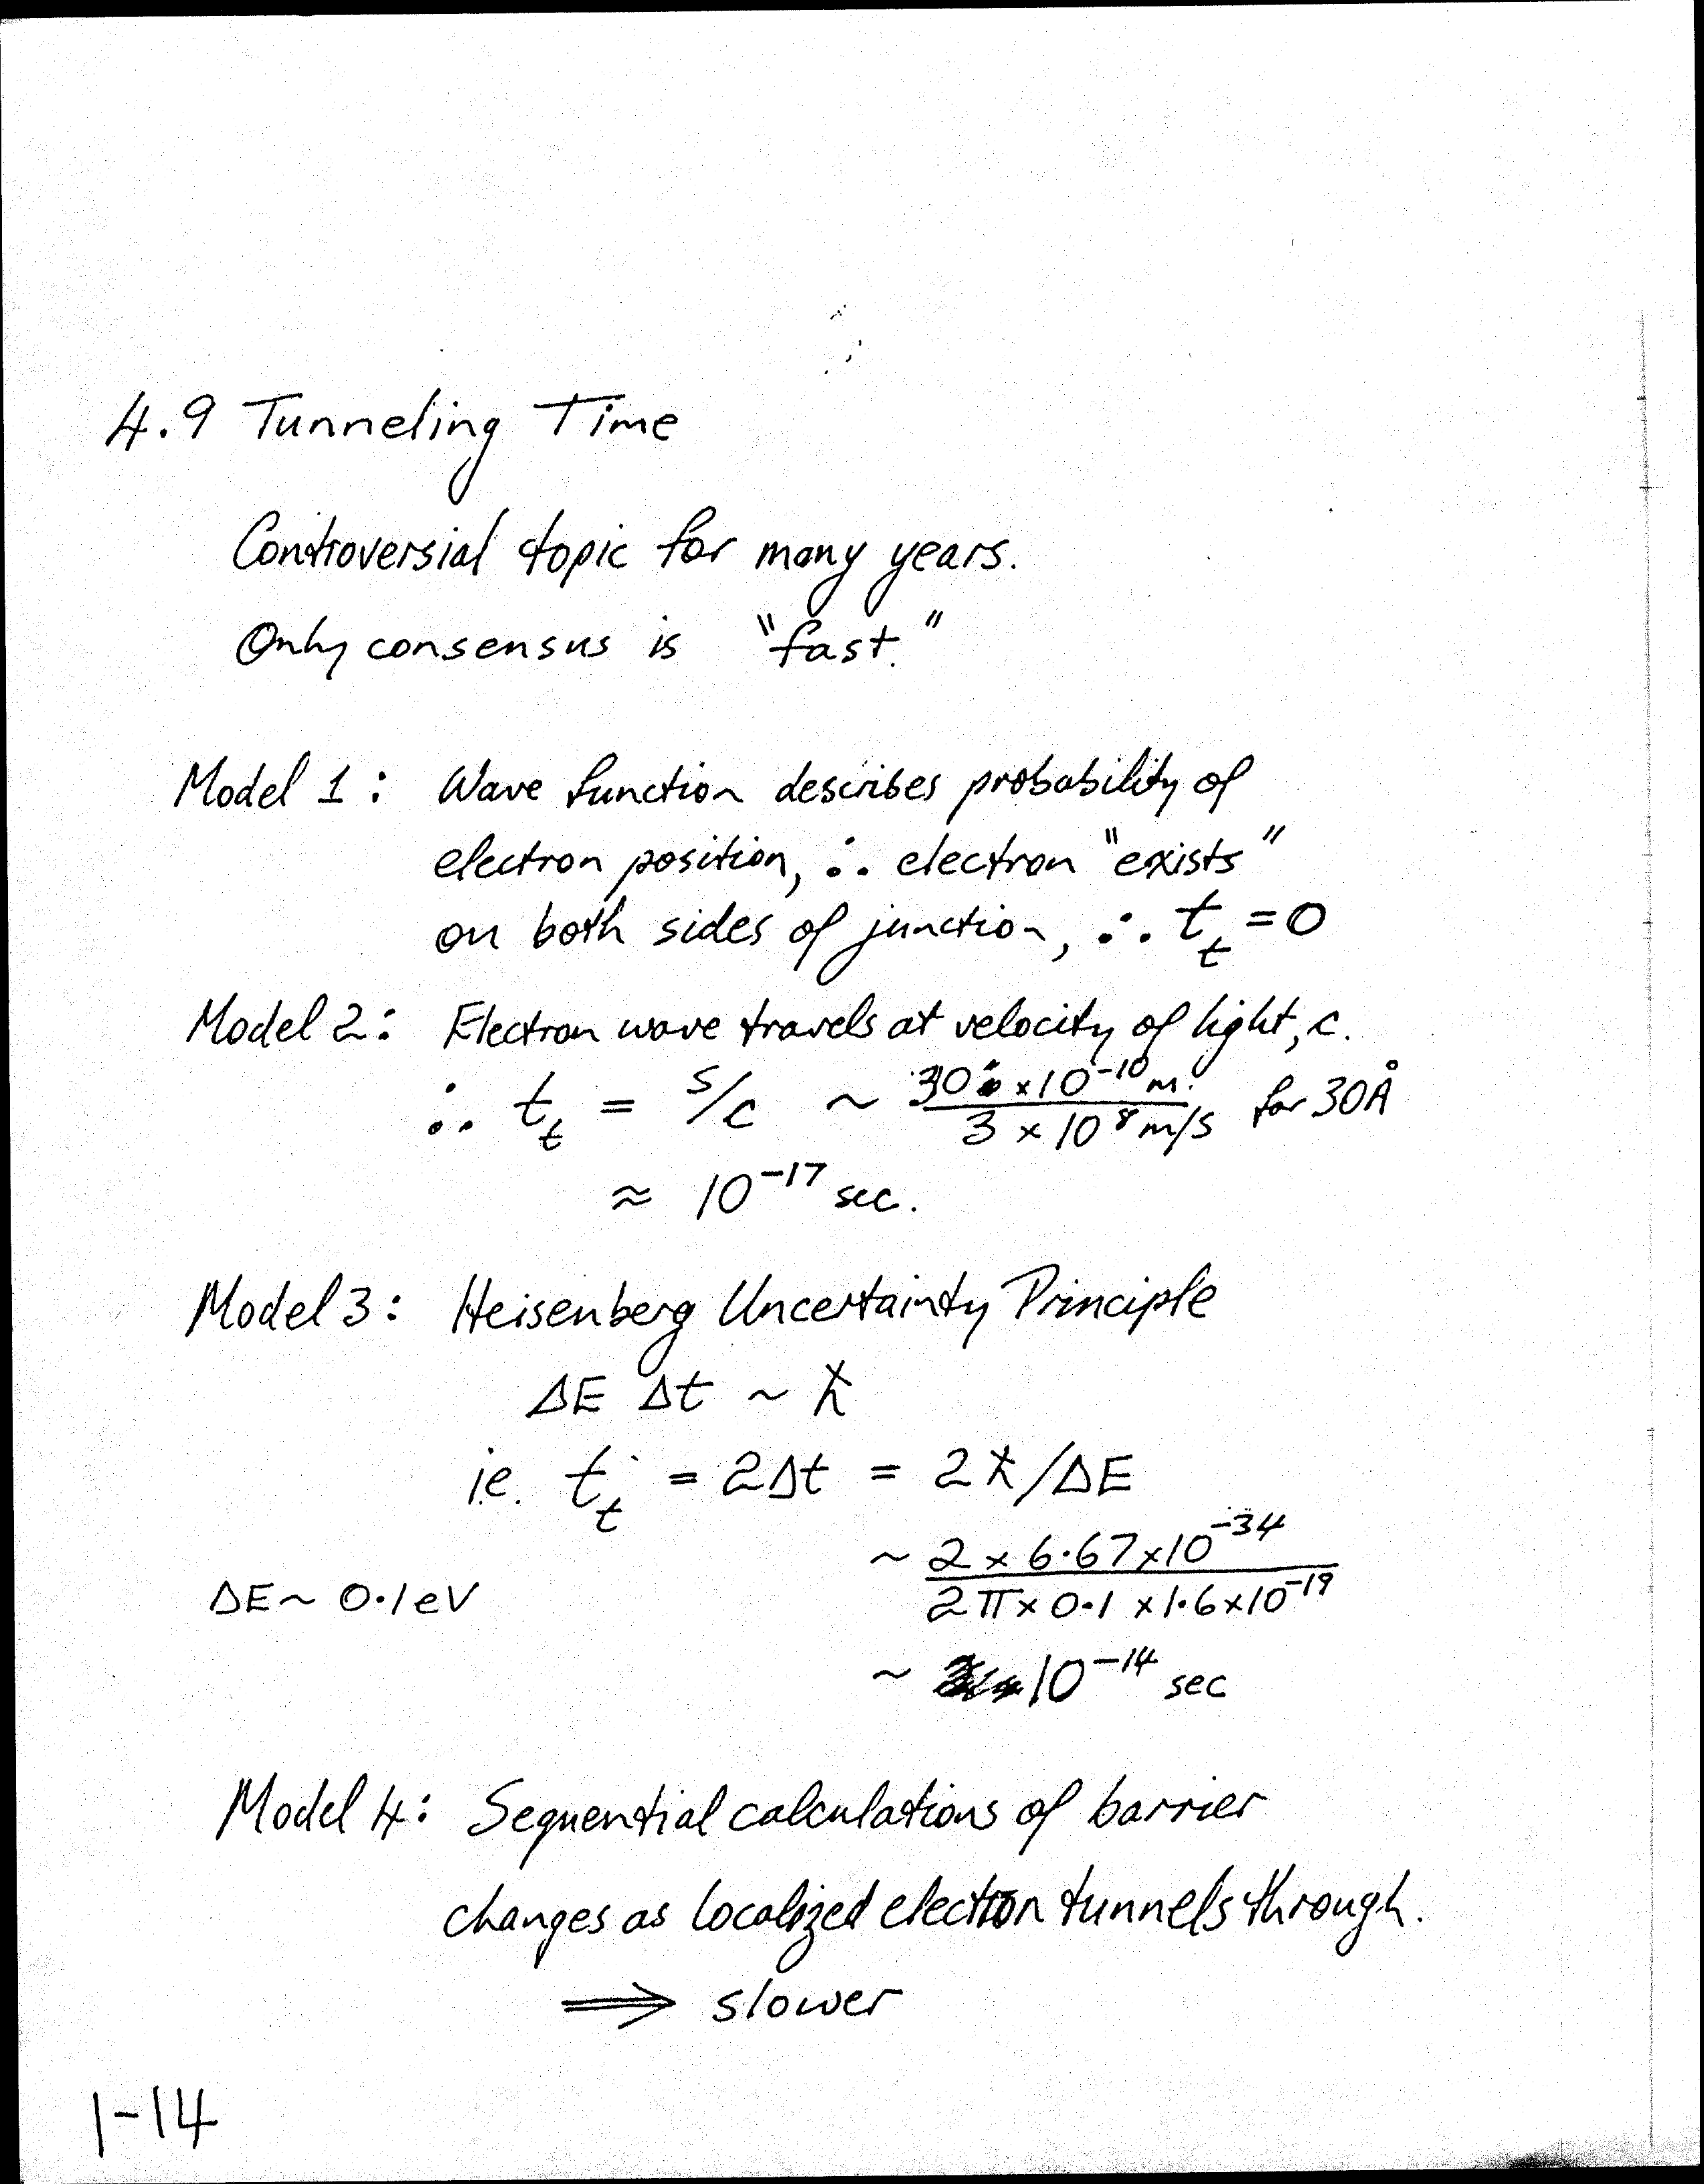 4.9 Tunneling Time
Controversial topic for many years.
Only consensus is "fast."
Model 1: Wave function describes probability of
electron position, ∴ electron "exists"
on both sides of junction, ∴ t_t = 0
Model 2: Electron wave travels at velocity of light, c.
∴ t_t = s/c ~ 30 × 10^-10 m / 3 × 10^8 m/s for 30Å
≈ 10^-17 sec.
Model 3: Heisenberg Uncertainty Principle
ΔE Δt ~ ħ
i.e. t_t = 2Δt = 2ħ/ΔE
~ 2 × 6.67 × 10^-34 / 2π × 0.1 × 1.6 × 10^-19
ΔE ~ 0.1 eV
~ 10^-14 sec
Model 4: Sequential calculations of barrier
changes as localized electron tunnels through.
⟹ slower
1-14